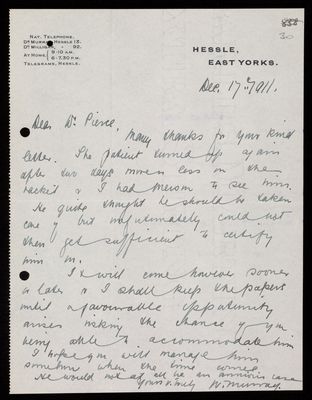 NAT. TELEPHONE.
DR MURRAY HESSLE 13.
DR MILLIGAN, " 92.
AT HOME. 9-10 A.M.
6-7.30 P.M.
TELEGRAMS, HESSLE.
888
30
HESSLE,
EAST YORKS.
Dec. 17th 1911.
Dear Dr Pierce,
Many thanks for your kind
letter. The patient turned up again
after two days more or less on the
racket & I had Merson to see him.
He quite thought he should be taken
care of but unfortunately could not
then get sufficient to certify
him on.
It will come however sooner
or later & I shall keep the papers
until a favourable opportunity
arises risking the chance of your
being able to accommodate him
I hope you will manage him
somehow when the time comes.
He would not at all be an anxious case
Yours truly W. Murray.